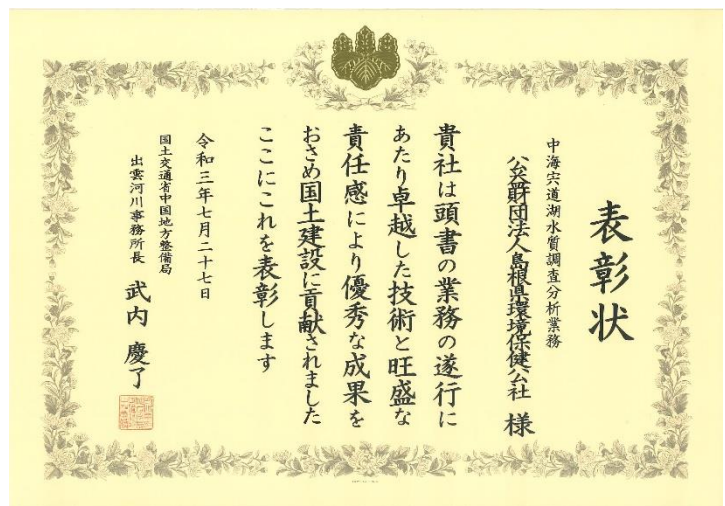 表彰状
中海宍道湖水質調査分析業務
公益財団法人島根県環境保健公社 様
貴社は頭書の業務の遂行に
あたり卓越した技術と旺盛な
責任感により優秀な成果を
おさめ国土建設に貢献されました
ここにこれを表彰します
令和三年七月二十七日
国土交通省中国地方整備局
出雲河川事務所長 武内 慶了